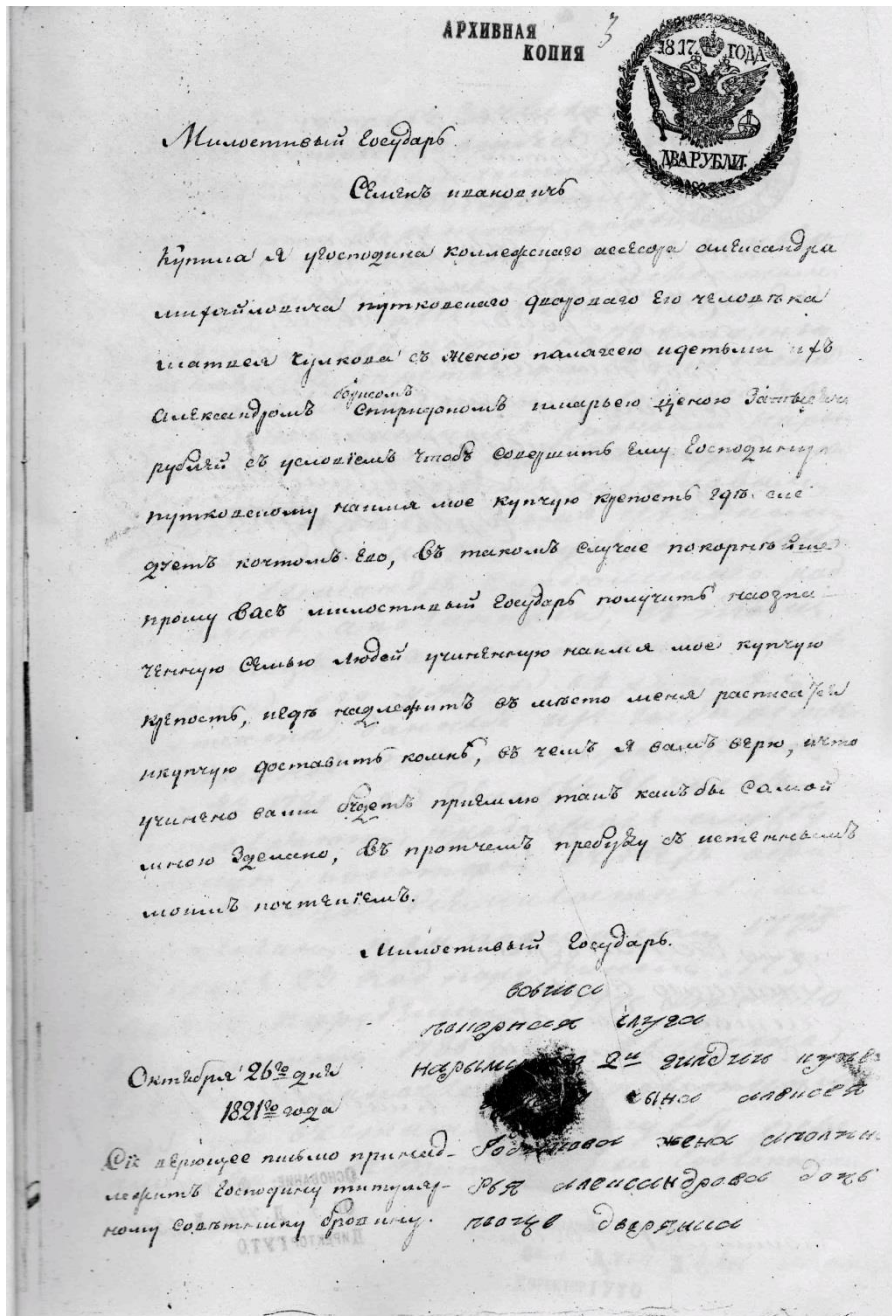 АРХИВНАЯ
КОПИЯ
3
1817. ГОДА
ДВА РУБЛИ.
Милостивый Государь
Семенъ ивановичь
Купила я угосподина коллежскаго ассесора александра
михайловича путковскаго двороваго Его человѣка
матвея Чулкова съ женою палагеею идетьми ихъ
Александромъ борисомъ Спиридономъ имарьею ценою
рублей съ условіемъ чтобъ совершить Ему Господину
путковскому наимя мое купчую крепость гдѣ сле
дуетъ коштомъ Его, Въ такомъ случае покорнейше
прошу Васъ милостивый Государь получить наозна
ченную Семью людей учиненную наимя мое купчую
крепость, игдѣ надлежитъ въ место меня расписаться
икупчую доставить комнѣ, въ чемъ я вамъ верю, ичто
учинено вами будетъ приемлю такъ какъ бы Самой
мною Зделано, Въ протчемъ пребуду съ истеннымъ
моимъ почтеніемъ.
Милостивый Государь.
вашиа
покорная слуга
2й гилдии
сына алексея
жена
александрова дочь
дворянка
Октября 26го дня
1821го года
Сіе верющее письмо принад-
лежитъ Господину титуляр-
ному Советнику бровину.